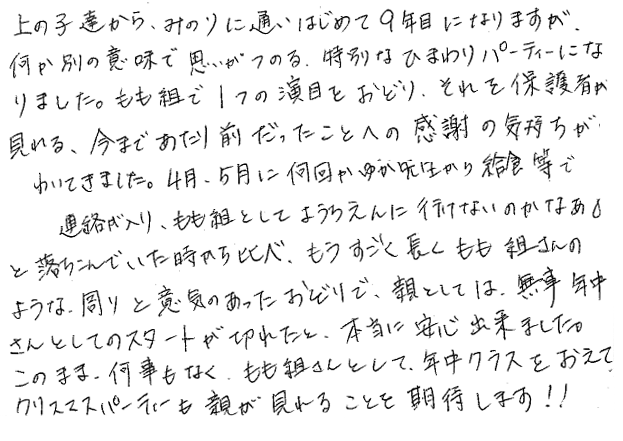 上の子達から、みのりに通いはじめて9年目になりますが、
何か別の意味で思いがつのる、特別なひまわりパーティーにな
りました。もも組で1つの演目をおどり、それを保護者が
見れる、今まであたり前だったことへの感謝の気持ちが
わいてきました。4月、5月に何回かゆか先生から給食等で
連絡が入り、もも組としてようちえんに行けないのかなあ
と落ちこんでいた時から比べ、もうすごく長くもも組さんの
ような、周りと意気のあったおどりで、親としては、無事年中
さんとしてのスタートが切れたと、本当に安心出来ました。
このまま、何事もなく、もも組さんとして、年中クラスをおえて
クリスマスパーティーも親が見れることを期待します!!